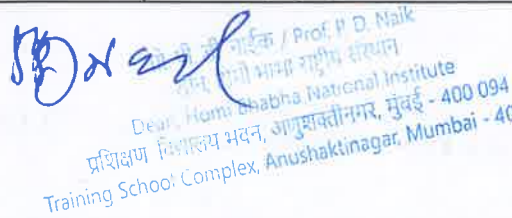 नाईक / Prof. P. D. Naik
होमी भाभा राष्ट्रीय संस्थान
Dean, Homi Bhabha National Institute
प्रशिक्षण विद्यालय भवन, अणुशक्तीनगर, मुंबई - 400 094
Training School Complex, Anushaktinagar, Mumbai - 40